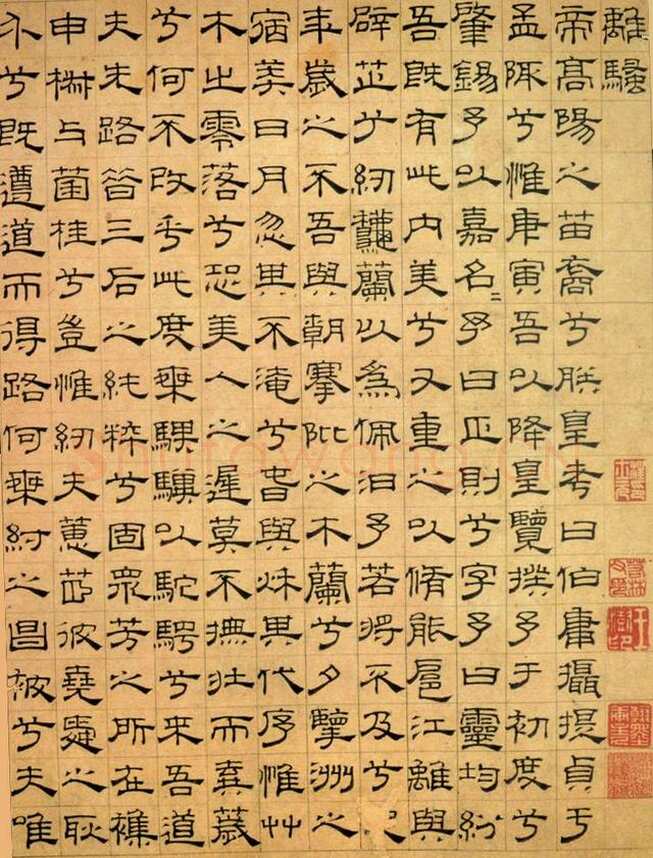 離騷
帝高陽之苗裔兮朕皇考曰伯庸攝提貞于
孟陬兮惟庚寅吾以降皇覽揆予于初度兮
肇錫予以嘉名=予曰正則兮字予曰靈均紛
吾既有此內美兮又重之以脩能扈江離與
辟芷兮紉龝蘭以為佩汩予若將不及兮
年歲之不吾與朝搴阰之木蘭兮夕擥洲之
宿莽日月忽其不淹兮春與秌其代序惟艸
木之零落兮恐美人之遲莫不撫壯而棄薉
兮何不改乎此度椉騏驥以駝騁兮來吾道
夫先路昔三后之純粹兮固眾芳之所在雜
申椒与菌桂兮豈惟紉夫蕙茝彼堯舜之耿
介兮既遵道而得路何桀紂之昌被兮夫唯